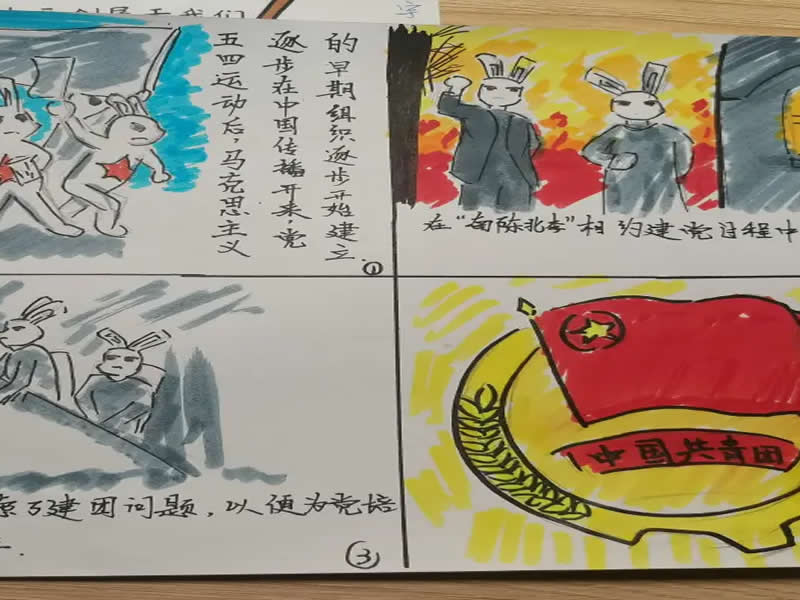 创是于我们
字
五四运动后，马克思主义
逐步在中国传播开来，党
的早期组织逐步开始建立.
①
在“南陈北李”相约建党日程中
虑了建团问题，以便为党培
③
中国共青团